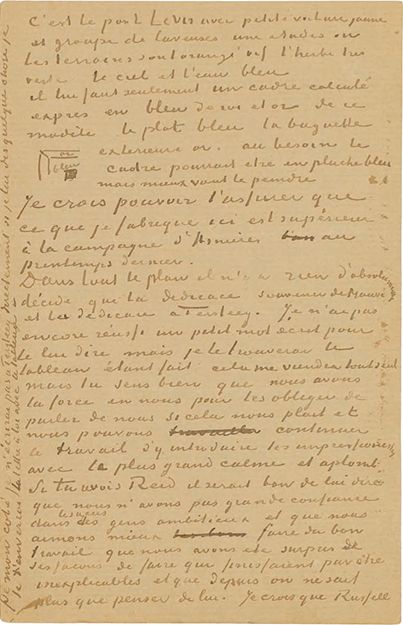 C'est le pont Levis avec petite voiture jaune
et groupe de laveuses une etudes ou
les terrains sont orangé vif l'herbe tres
verte le ciel et l'eau bleu
il lui faut seulement un cadre calculé
expres en bleu de roi et or de ce
modèle le plat bleu la baguette
or
bleu
exterieure or. au besoin le
cadre pourrait etre en pluche bleu
mais mieux vaut le peindre
Je crois pouvoir t'assurer que
ce que je fabrique ici est supérieur
à la campagne d'Asnieres au
printemps dernier.
Dans tout le plan il n'y a rien d'absolument
décidé que la dedicace souvenir de Mauve
et la dedicace a Tersteeg. Je n'ai pas
encore réussi un petit mot écrit pour
le lui dire mais je le trouverai le
tableau étant fait cela me viendra tout seul
mais tu sens bien que nous avons
la force en nous pour les obliger de
parler de nous si cela nous plait et
nous pouvons travailler continuer
le travail d'y introduire les impressionistes
avec le plus grand calme et aplomb.
Si tu vois Reid il serait bon de lui dire
que nous n'avons pas grande confiance
dans des gens ambitieux et que nous
aimons mieux faire du bon
travail que nous avons été surpris de
ses façons de faire qui puissaient par être
inexplicables et que depuis on ne sait
plus que penser de lui. Je crois que Russell
De mon coté je n'écrirai pas à Tersteeg directement si je lui dis quelque chose je